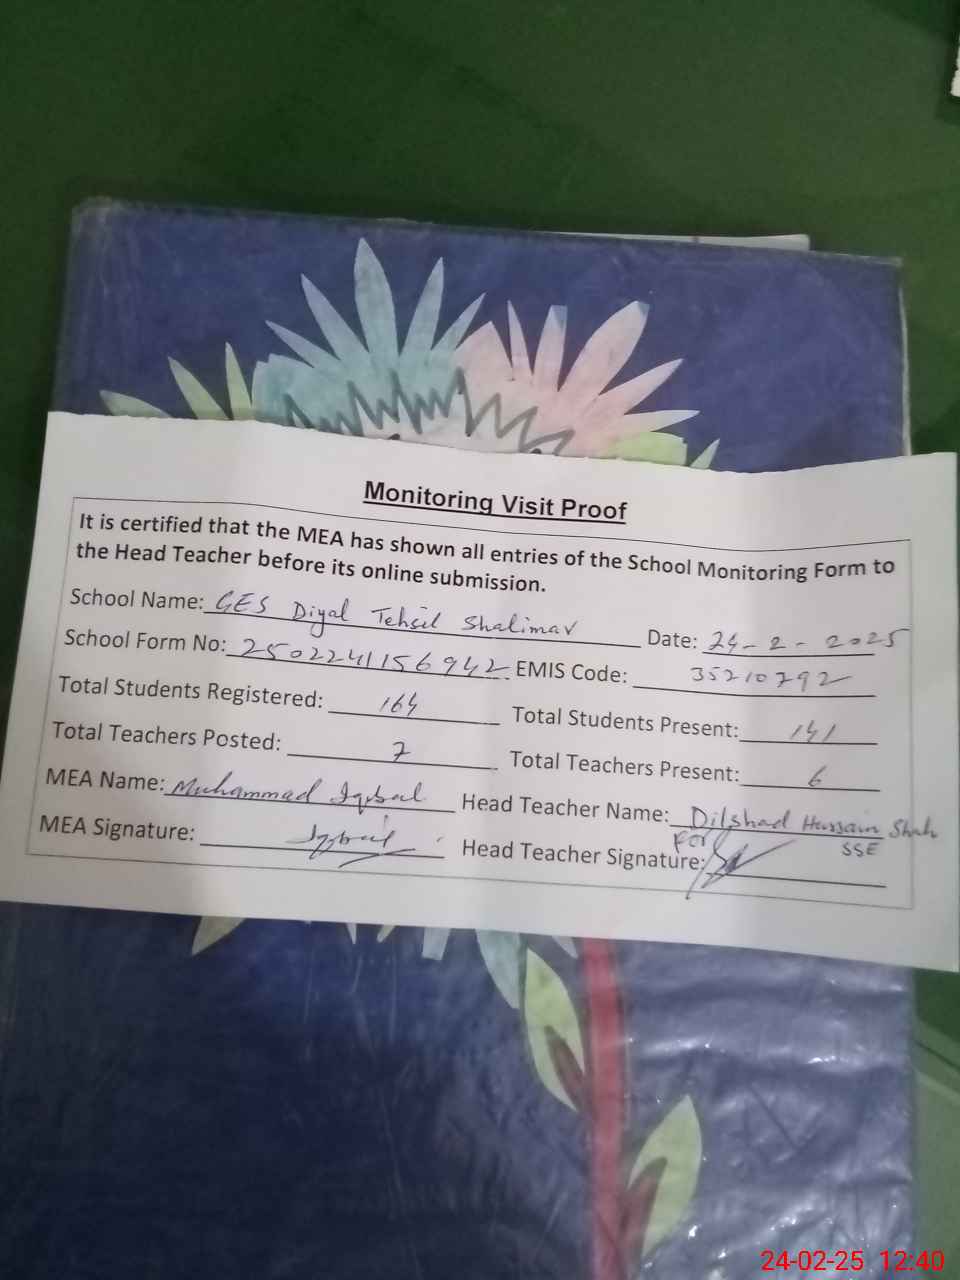 Monitoring Visit Proof
It is certified that the MEA has shown all entries of the School Monitoring Form to
the Head Teacher before its online submission.
School Name: GES Diyal Tehsil Shalimar Date: 24-2-2025
School Form No: 2502241156942 EMIS Code: 35210792
Total Students Registered: 164 Total Students Present: 141
Total Teachers Posted: 7 Total Teachers Present: 6
MEA Name: Muhammad Iqbal Head Teacher Name: Dilshad Hussain Shah
For SSE
MEA Signature: Iqbal Head Teacher Signature:
24-02-25 12:40